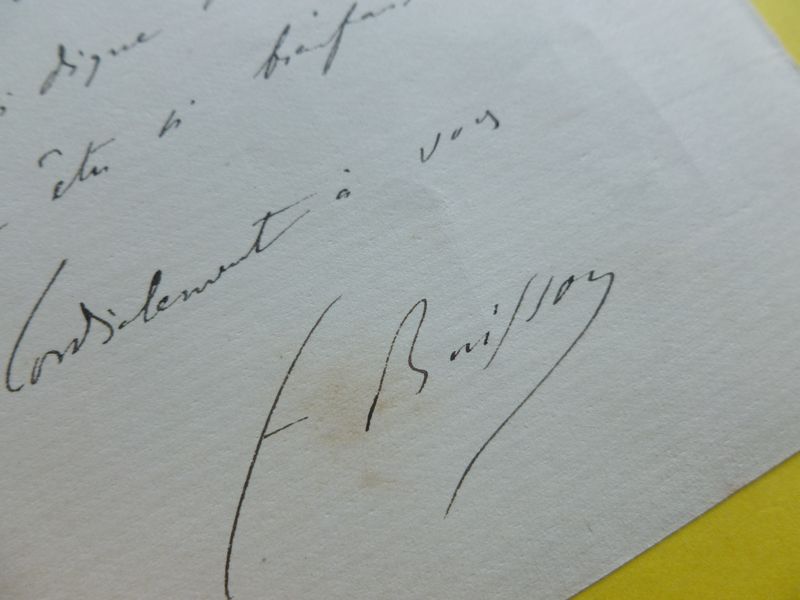 si digne
êtes si bienfais
Cordialement à vous
F Buisson